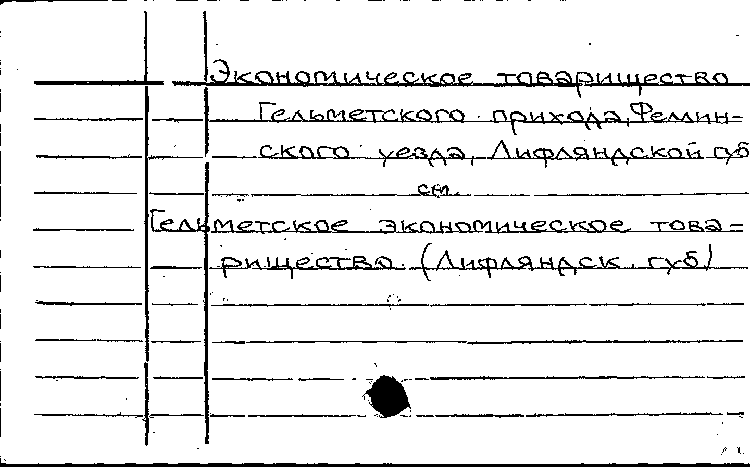 Экономическое товарищество
Гельметского прихода, Феллин-
ского уезда, Лифляндской губ
см.
Гельметское экономическое това=
рищество. (Лифляндск. губ)